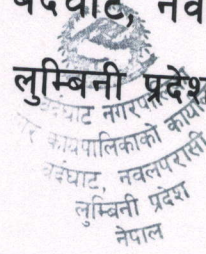 बर्दघाट, नव
लुम्बिनी प्रदेश
बर्दघाट नगरप
र कार्यपालिकाको कार्या
बर्दघाट, नवलपरासी
लुम्बिनी प्रदेश
नेपाल